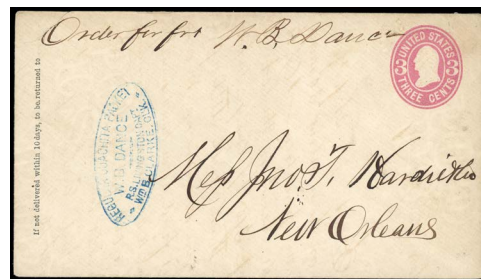 Order for frt W. B. Dance
UNITED STATES
3 3
THREE CENTS
If not delivered within 10 days, to be returned to
OUACHITA PACKET
W.B. DANCE
WM B. CLARKE
Mess Jno. T. Hardie & Co
New Orleans